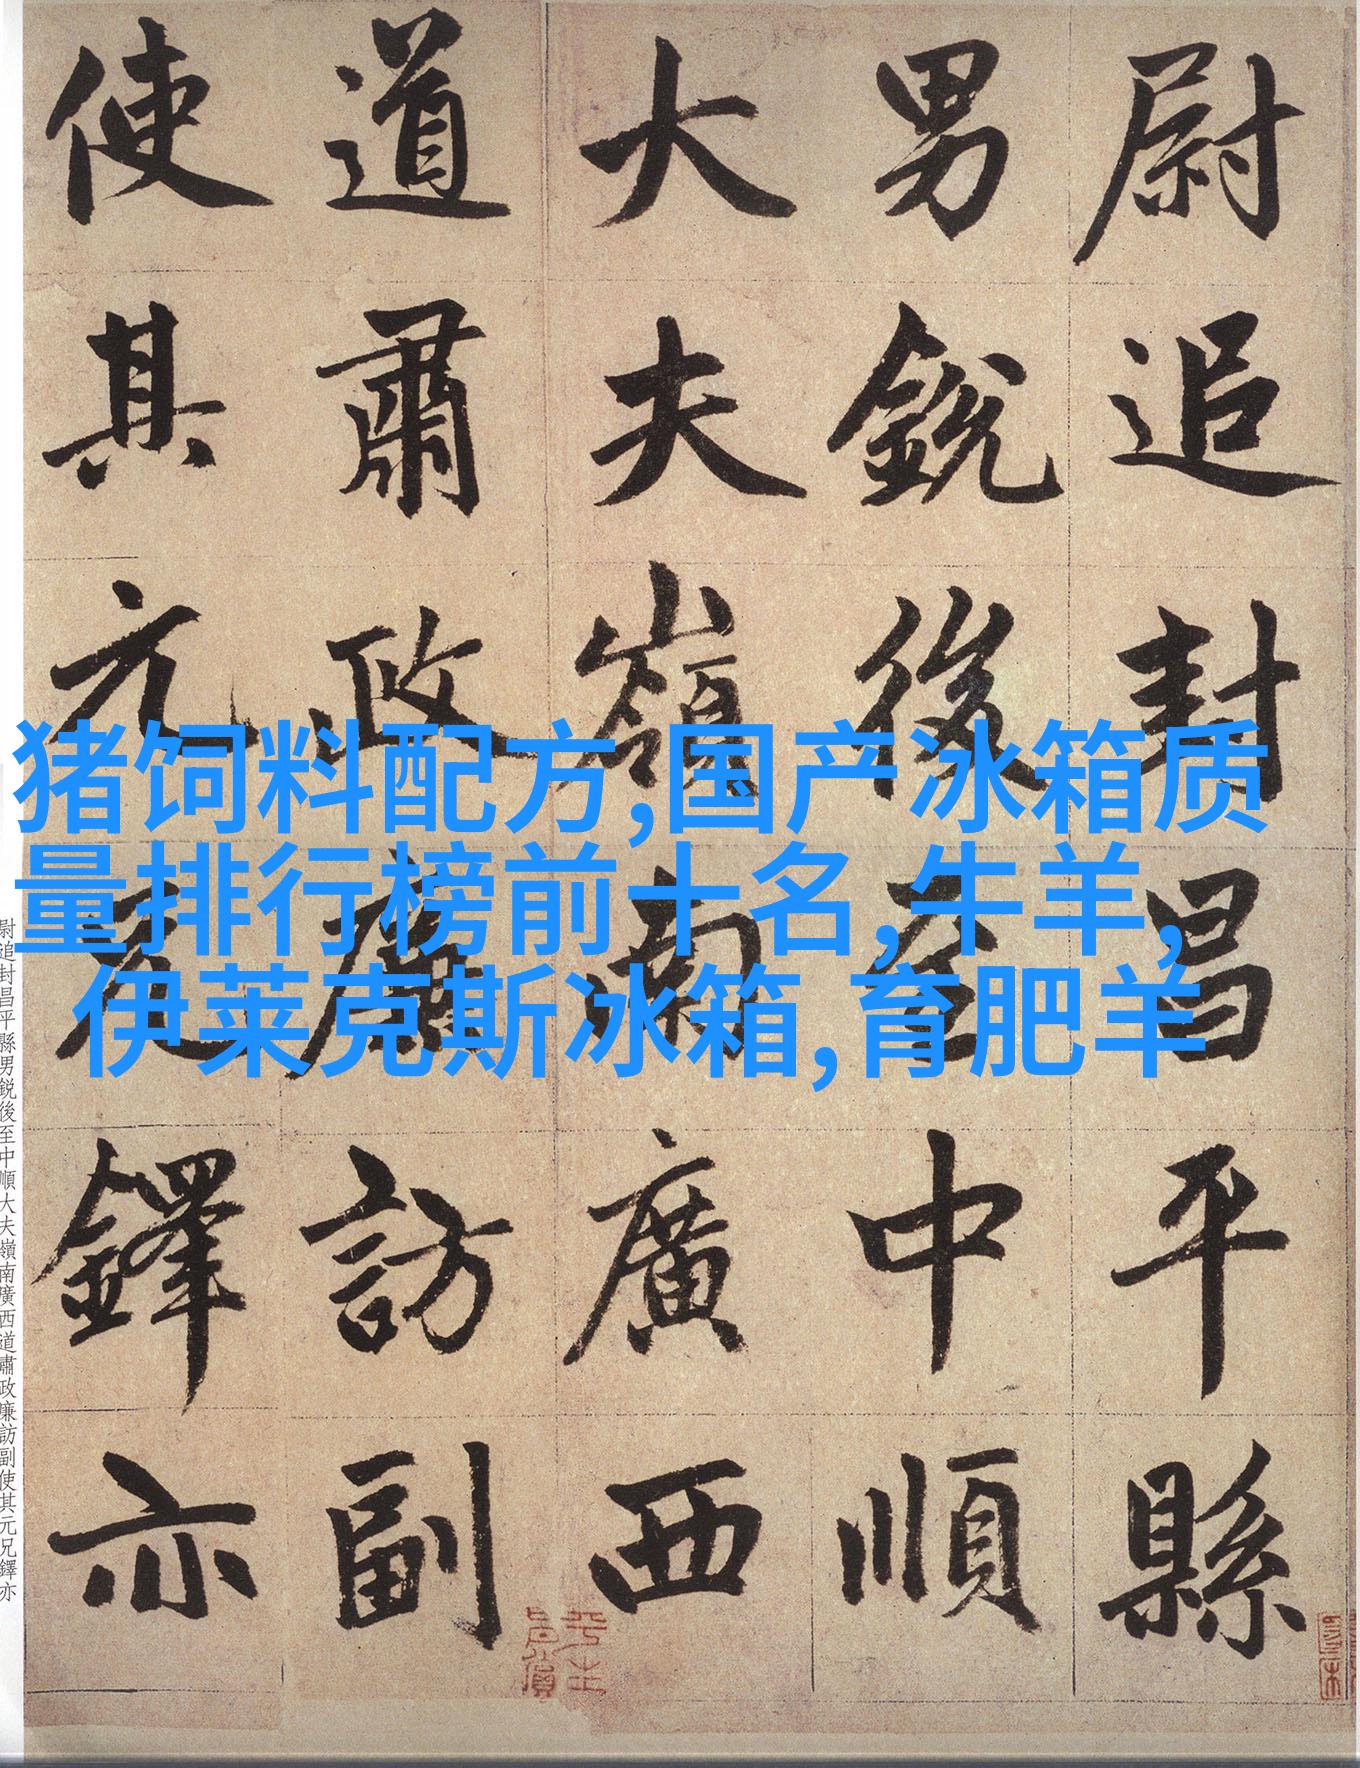 尉追封昌平縣
男銳後至中順
大夫嶺南廣西
道肅政廉訪副
使其元兄鐸亦
猪饲料配方,国产冰箱质
量排行榜前十名,牛羊,
伊莱克斯冰箱,育肥羊
尉追封昌平縣男銳後至中順大夫嶺南廣西道肅政廉訪副使其元兄鐸亦